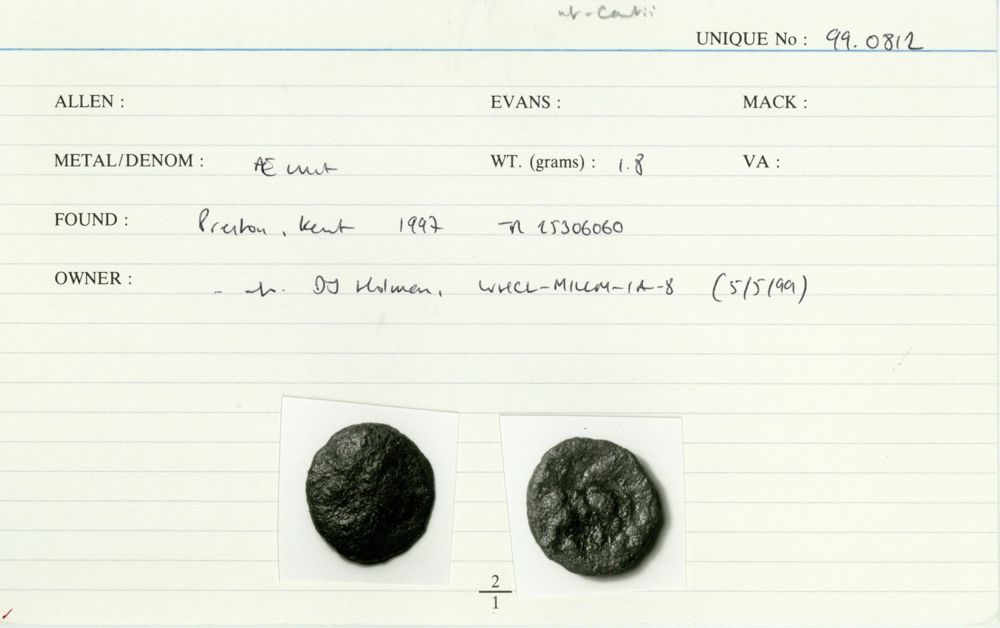 UNIQUE No : 99.0812
ALLEN : EVANS : MACK :
METAL/DENOM : Æ unit WT. (grams) : 1.8 VA :
FOUND : Preston, Kent 1997 TR 25306060
OWNER : DJ Holman, WHCL-MILLM-IA-8 (5/5/99)
2
1